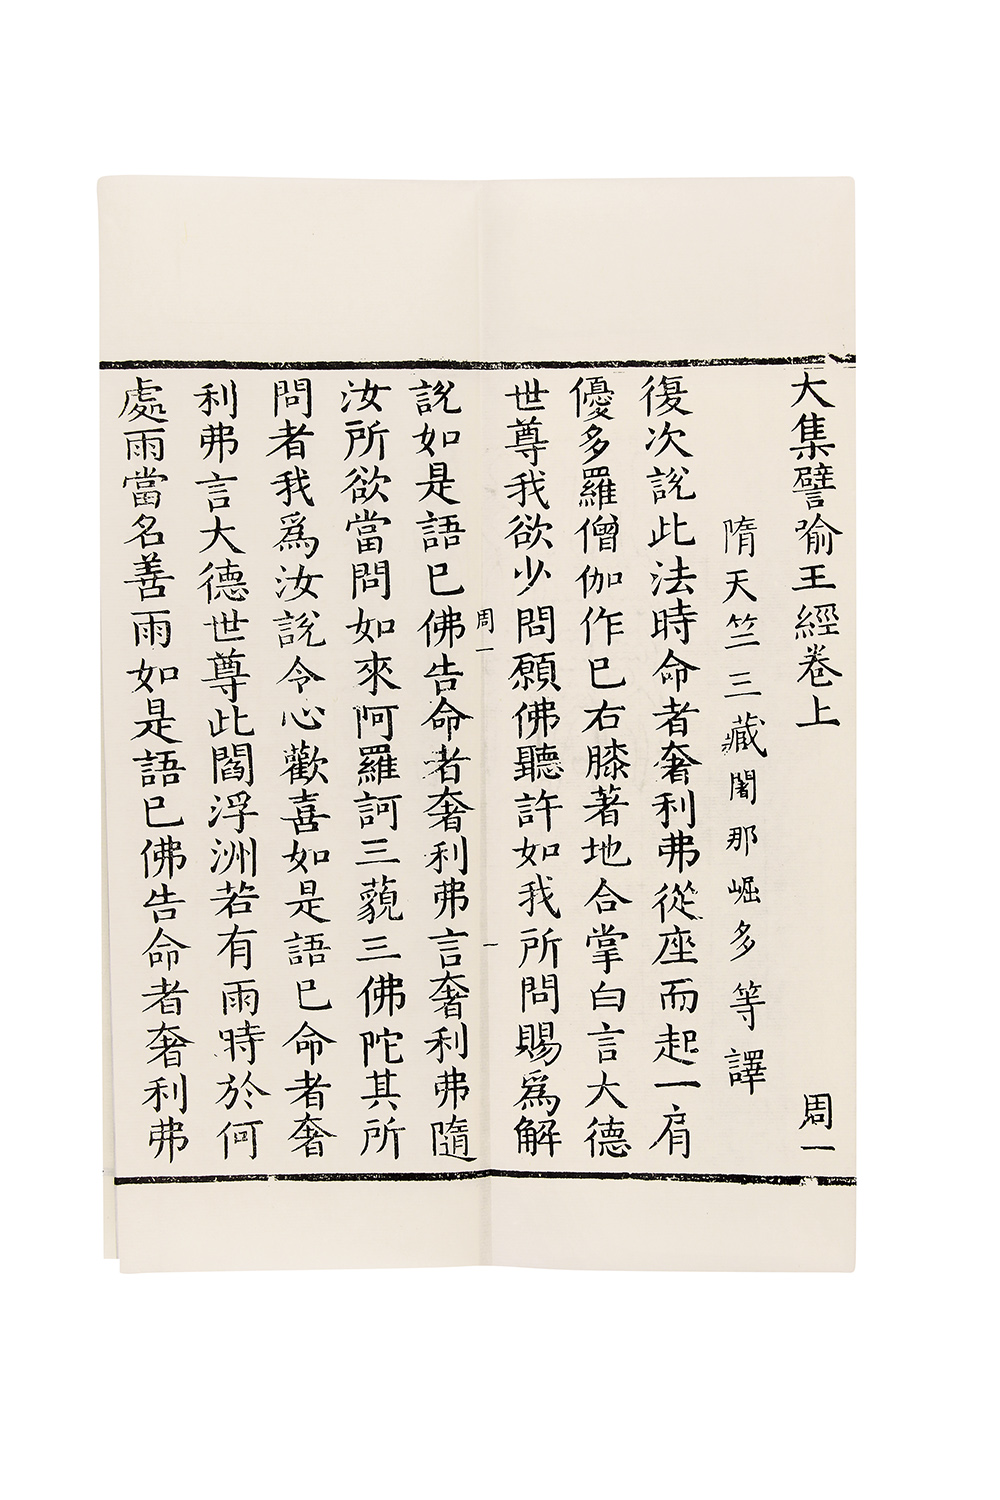 大集譬喻王經卷上 周一
隋天竺三藏闍那崛多等譯
復次說此法時命者奢利弗從座而起一肩
優多羅僧伽作已右膝著地合掌白言大德
世尊我欲少問願佛聽許如我所問賜為解
周一 一
說如是語已佛告命者奢利弗言奢利弗隨
汝所欲當問如來阿羅訶三藐三佛陀其所
問者我為汝說令心歡喜如是語已命者奢
利弗言大德世尊此閻浮洲若有雨時於何
處雨當名善雨如是語已佛告命者奢利弗